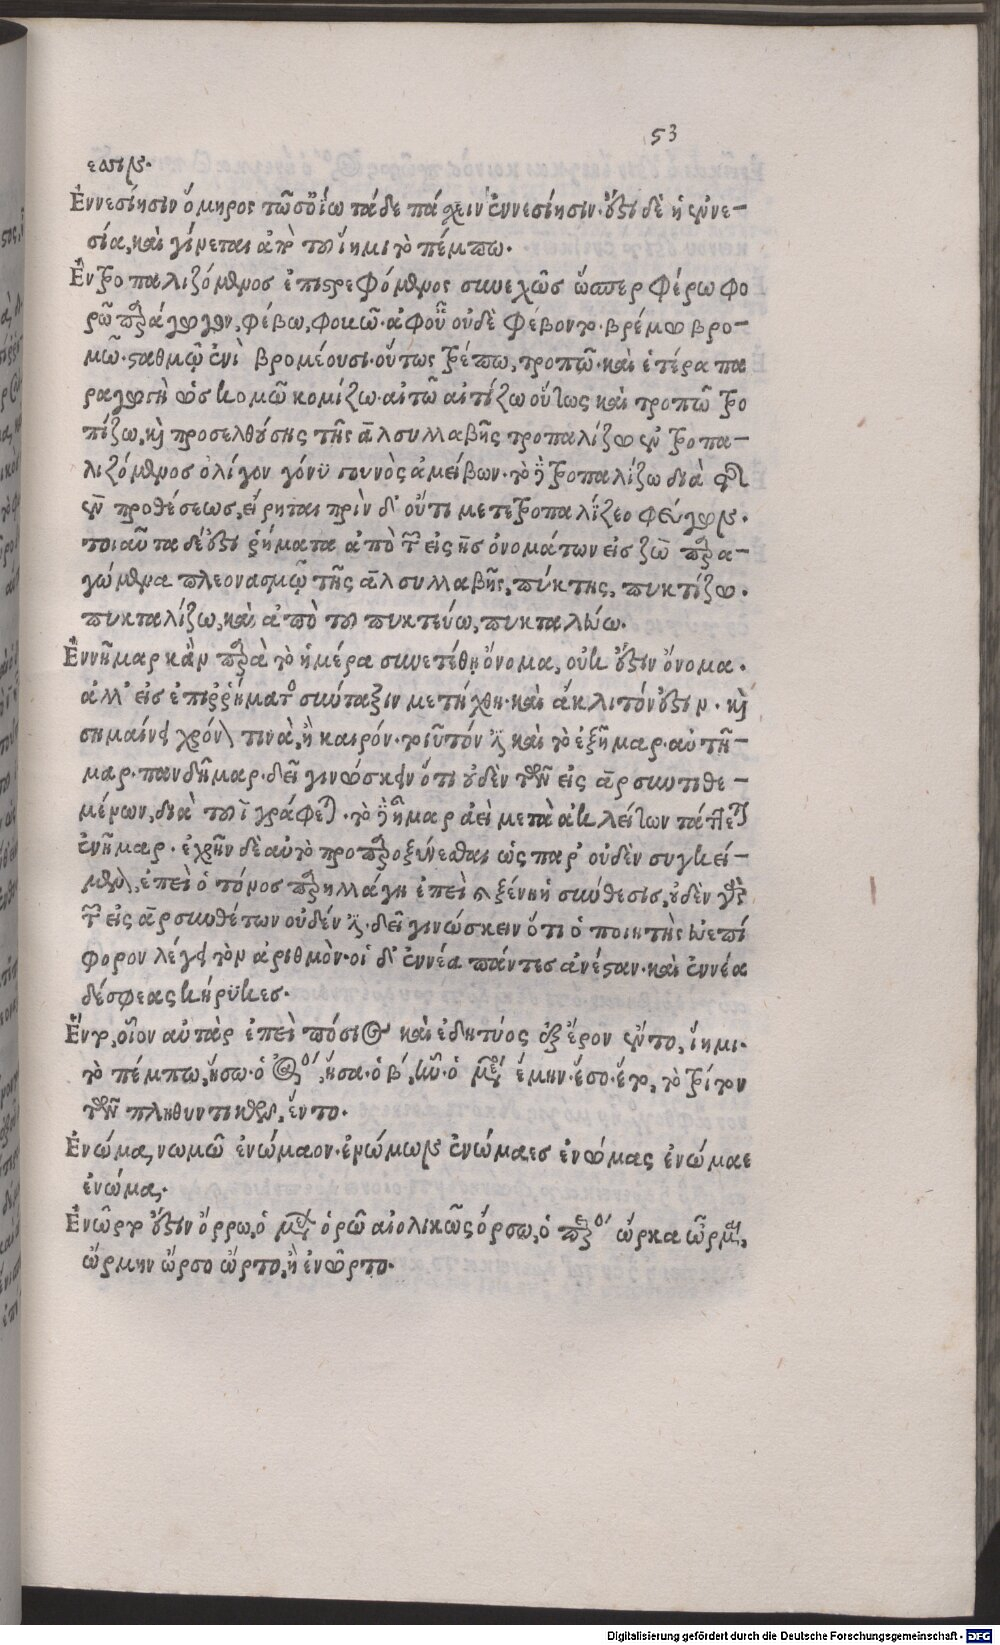 53
εσπες.
Ἐννεσίησιν ὅμηρος τῶ σῶ οἴω τάδε πάσχειν ἐννεσίησιν. ἔστι δὲ ἡ ἐννε-
σία, καὶ γίνεται ἀπὸ τοῦ ἵημι τὸ πέμπω.
Ἐντροπαλιζόμενος ἐπιστρεφόμενος συνεχῶς ὥσπερ φέρω φο
ρῶ παράγωγον, φέβω, φοβῶ. ἀφ' οὗ οὐδὲ φέβοντο. βρέμω βρο-
μῶ. σταθμῷ ἐνὶ βρομέουσι. οὕτως τρέπω, τροπῶ. καὶ ἑτέρα πα
ραγωγὴ ὡς κομῶ κομίζω. αἰτῶ αἰτίζω οὕτως καὶ τροπῶ τρο
πίζω, καὶ προσελθούσης τῆς αλ συλλαβῆς τροπαλίζω ἐν τροπα-
λιζόμενος ὀλίγον γόνυ γουνὸς ἀμείβων. τὸ δὲ τροπαλίζω διὰ τῆς
ἐν προθέσεως, εἴρηται πρὶν δ' οὔτι μετετροπαλίζεο φεύγων.
τοιαῦτα δέ ἐστι ῥήματα ἀπὸ τῶν εἰς ης ὀνομάτων εἰς ζω παρα-
γώμενα πλεονασμῷ τῆς αλ συλλαβῆς, πύκτης, πυκτίζω.
πυκταλίζω, καὶ ἀπὸ τοῦ πυκτεύω, πυκταλεύω.
Ἐννῆμαρ κἂν παρὰ τὸ ἡμέρα συνετέθη ὄνομα, οὐκ ἔστιν ὄνομα.
ἀλλ' εἰς ἐπιρρήματος σύνταξιν μετήχθη. καὶ ἄκλιτόν ἐστιν. καὶ
σημαίνει χρόνον τινὰ, ἢ καιρόν. τοιοῦτόν ἐστι καὶ τὸ ἑξῆμαρ. αὐτῆ-
μαρ. πανδῆμαρ. δεῖ γινώσκειν ὅτι οὐδὲν τῶν εἰς αρ συντιθε-
μένων, διὰ τοῦ ῑ γράφεται. τὸ δὲ ἦμαρ ἀεὶ μετὰ ἀκλείτων τάττεται
ἐνῆμαρ. ἐχρῆν δὲ αὐτὸ προπαροξύνεσθαι ὡς παρ' οὐδὲν συγκεί-
μενον, ἐπεὶ ὁ τόνος παρηλλάγη ἐπεὶ ξένη ἡ σύνθεσις, οὐδὲν γὰρ
τῶν εἰς αρ συνθέτων οὐδέν ἐστι. δεῖ γινώσκειν ὅτι ὁ ποιητὴς εὐεπί
φορον λέγει τὸν ἀριθμὸν. οἱ δ' ἐννέα πάντες ἀνέσταν. καὶ ἐννέα
δέ σφεας κήρυκες.
Ἔντο, οἷον αὐτὰρ ἐπεὶ πόσιος καὶ ἐδητύος ἐξ ἔρον ἕντο, ἵημι.
τὸ πέμπω, ἥσω. ὁ ἀόριστος, ἧσα. ὁ β, ἧν. ὁ μέσος ἕμην. ἕσο. ἕτο, τὸ τρίτον
τῶν πληθυντικῶν, ἕντο.
Ἐνώμα, νωμῶ ἐνώμαον. ἐνώμων ἐνώμαες ἐνώμας ἐνώμαε
ἐνώμα.
Ἐνῶρτο ἔστιν ὄρρω, ὁ μέλλων ὀρῶ αἰολικῶς ὄρσω, ὁ παρακείμενος ὦρκα ὦρμαι,
ὤρμην ὦρσο ὦρτο, ἢ ἐνῶρτο.
Digitalisierung gefördert durch die Deutsche Forschungsgemeinschaft - DFG